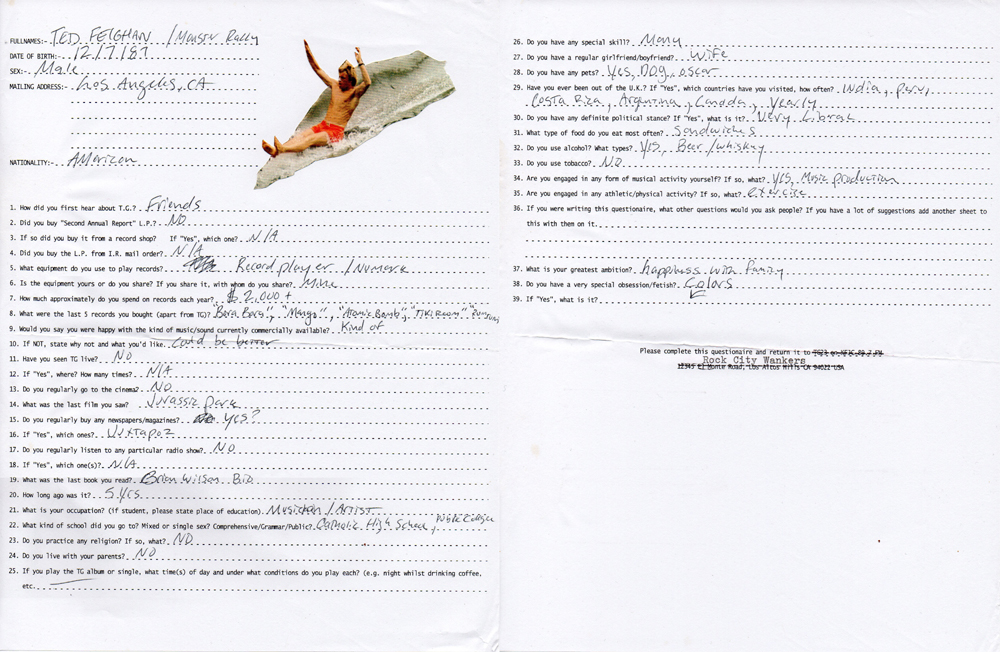 FULLNAMES:- TED FEIGHAN / Monster Rally
DATE OF BIRTH:- 12/7/87
SEX:- Male
MAILING ADDRESS:- Los Angeles, CA
NATIONALITY:- AMerican
1. How did you first hear about T.G.? Friends
2. Did you buy "Second Annual Report" L.P.? NO
3. If so did you buy it from a record shop? If "Yes", which one? N/A
4. Did you buy the L.P. from I.R. mail order? N/A
5. What equipment do you use to play records? Record player / Numark
6. Is the equipment yours or do you share? If you share it, with whom do you share? Mine
7. How much approximately do you spend on records each year? $2,000+
8. What were the last 5 records you bought (apart from TG)? "Bora Bora", "Mango", "Atomic Bomb", "TIKI ROOM"
9. Would you say you were happy with the kind of music/sound currently commercially available? Kind of
10. If NOT, state why not and what you'd like. could be better
11. Have you seen TG live? NO
12. If "Yes", where? How many times? N/A
13. Do you regularly go to the cinema? NO
14. What was the last film you saw? Jurassic park
15. Do you regularly buy any newspapers/magazines? yes?
16. If "Yes", which ones? Juxtapoz
17. Do you regularly listen to any particular radio show? NO
18. If "Yes", which one(s)? N/A
19. What was the last book you read? Brian Wilson Bio
20. How long ago was it? 5 yrs
21. What is your occupation? (if student, please state place of education) Musician / Artist
22. What kind of school did you go to? Mixed or single sex? Comprehensive/Grammar/Public? Catholic High School, Public College
23. Do you practice any religion? If so, what? NO
24. Do you live with your parents? NO
25. If you play the TG album or single, what time(s) of day and under what conditions do you play each? (e.g. night whilst drinking coffee,
etc.
26. Do you have any special skill? Many
27. Do you have a regular girlfriend/boyfriend? Wife
28. Do you have any pets? Yes, DOg, oscar
29. Have you ever been out of the U.K.? If "Yes", which countries have you visited, how often? India, peru,
Costa Rica, Argentina, Canada, Yearly
30. Do you have any definite political stance? If "Yes", what is it? Very Liberal
31. What type of food do you eat most often? Sandwiches
32. Do you use alcohol? What types? Yes, Beer/whiskey
33. Do you use tobacco? NO
34. Are you engaged in any form of musical activity yourself? If so, what? Yes, Music production
35. Are you engaged in any athletic/physical activity? If so, what? exercise
36. If you were writing this questionaire, what other questions would you ask people? If you have a lot of suggestions add another sheet to
this with them on it.
37. What is your greatest ambition? happiness with Family
38. Do you have a very special obsession/fetish? Colors
39. If "Yes", what is it?
Please complete this questionaire and return it to
Rock City Wankers
12345 El Monte Road, Los Altos Hills CA 94022 USA